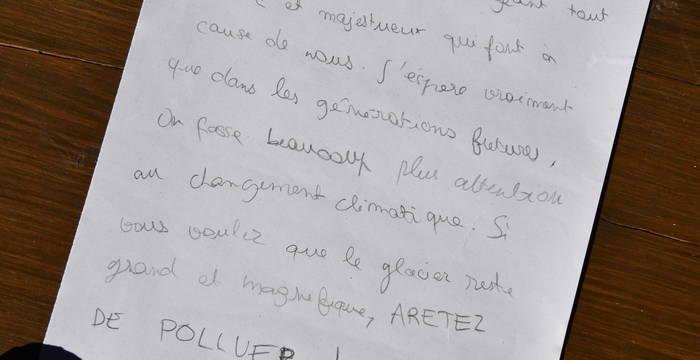 géant tout
et majestueux qui font à
cause de nous. J'éspere vraiment
que dans les générations futures,
On fasse beaucoup plus attention
au changement climatique. Si
vous voulez que le glacier reste
grand et magnifique, ARETEZ
DE POLLUER !